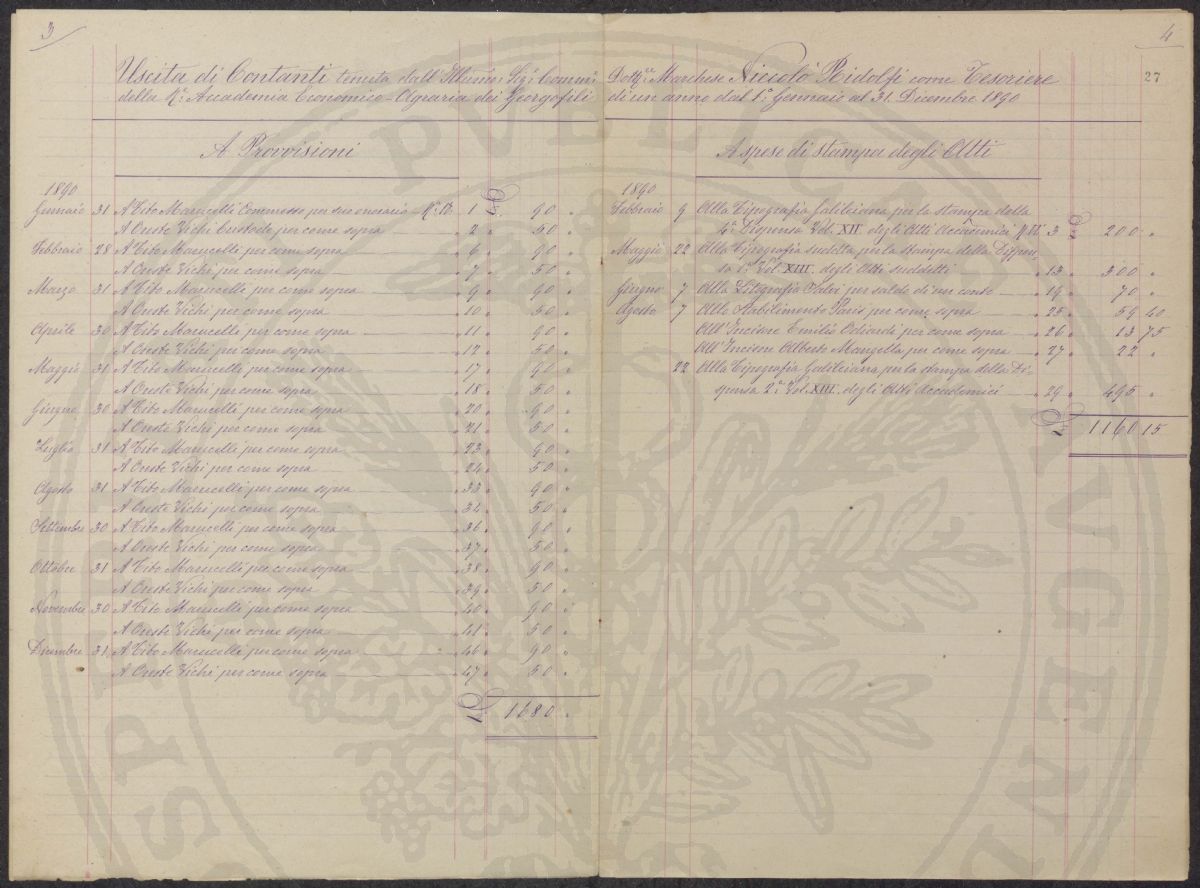 3
Uscita di Contanti tenuta dall' Illmo: Sigr: Comm:
della Ra: Accademia Economico-Agraria dei Georgofili
A Provvisioni
1890
Gennaio 31 A Tito Marucelli Commesso per suo onorario No. 1 £ 90 "
A Oreste Vichi Custode per come sopra " 2 " 50 "
Febbraio 28 A Tito Marucelli per come sopra " 6 " 90 "
A Oreste Vichi per come sopra " 7 " 50 "
Marzo 31 A Tito Marucelli per come sopra " 9 " 90 "
A Oreste Vichi per come sopra " 10 " 50 "
Aprile 30 A Tito Marucelli per come sopra " 11 " 90 "
A Oreste Vichi per come sopra " 12 " 50 "
Maggio 31 A Tito Marucelli per come sopra " 17 " 90 "
A Oreste Vichi per come sopra " 18 " 50 "
Giugno 30 A Tito Marucelli per come sopra " 20 " 90 "
A Oreste Vichi per come sopra " 21 " 50 "
Luglio 31 A Tito Marucelli per come sopra " 23 " 90 "
A Oreste Vichi per come sopra " 24 " 50 "
Agosto 31 A Tito Marucelli per come sopra " 33 " 90 "
A Oreste Vichi per come sopra " 34 " 50 "
Settembre 30 A Tito Marucelli per come sopra " 36 " 90 "
A Oreste Vichi per come sopra " 37 " 50 "
Ottobre 31 A Tito Marucelli per come sopra " 38 " 90 "
A Oreste Vichi per come sopra " 39 " 50 "
Novembre 30 A Tito Marucelli per come sopra " 40 " 90 "
A Oreste Vichi per come sopra " 41 " 50 "
Dicembre 31 A Tito Marucelli per come sopra " 46 " 90 "
A Oreste Vichi per come sopra " 47 " 50 "
£ 1680 "
4
27
Marchese Niccolò Ridolfi come Tesoriere
di un anno dal 1o. Gennaio al 31. Dicembre 1890
A spese di stampa degli Atti
1890
Febbraio 9 Alla Tipografia Galileiana per la stampa della
4a. Dispensa Vol. XII. degli Atti Accademici 3 £ 200 "
Maggio 22 Alla Tipografia suddetta per la stampa della Dispen-
sa 1a. Vol. XIII. degli Atti suddetti " 13 " 300 "
Giugno 7 Alla Litografia Salvi per saldo di un conto " 19 " 70 "
Agosto 7 Allo Stabilimento Paris per come sopra " 25 " 59 40
All' Incisore Emilio Odiardi per come sopra " 26 " 13 75
All' Incisore Alberto Mangella per come sopra " 27 " 22 "
22 Alla Tipografia Galileiana per la stampa della Di-
spensa 2a. Vol. XIII. degli Atti Accademici " 29 " 495 "
£ 1160 15